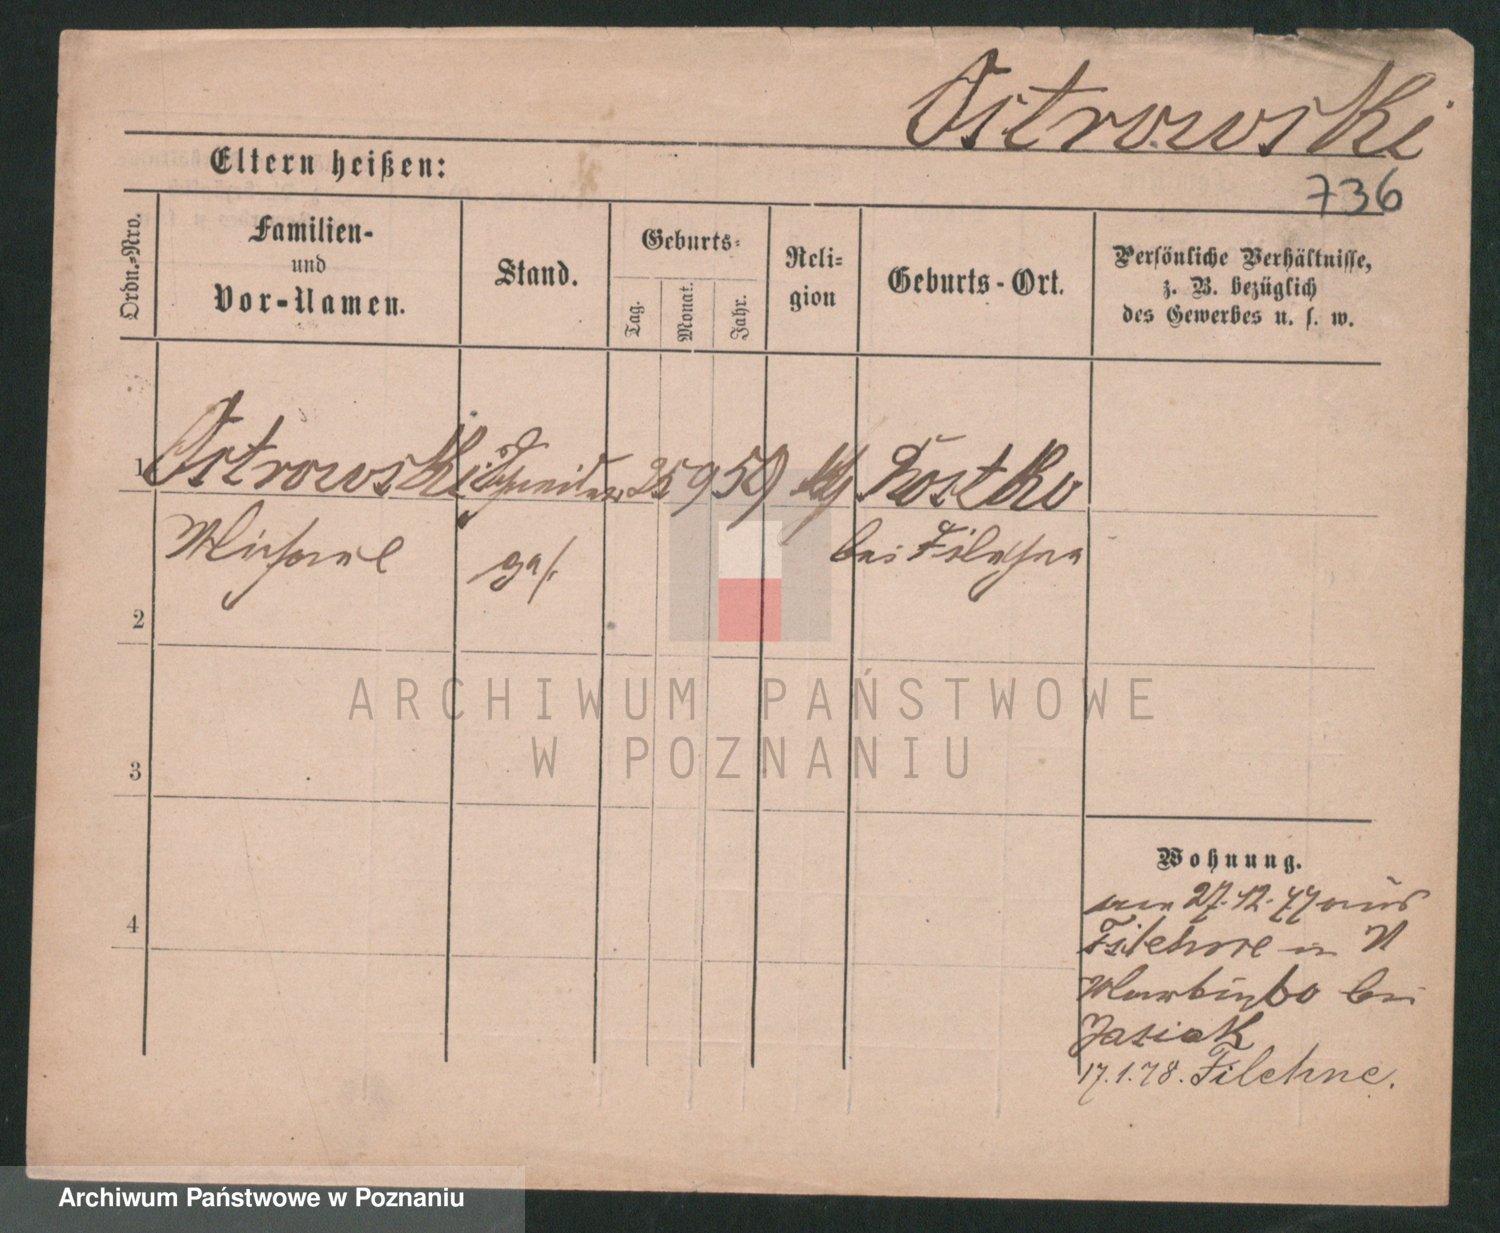 Ostrowski
736
Eltern heißen:
Ordn.-Nro.
Familien-
und
Vor-Namen.
Stand.
Geburts-
Tag.
Monat.
Jahr.
Reli-
gion
Geburts-Ort.
Persönliche Verhältnisse,
z. B. bezüglich
des Gewerbes u. s. w.
1 Ostrowski Schneider 25 9 59 Rostko
Michael
bei Filehne
2
3
4
Wohnung.
am 27.12.77 aus
Filehne in
bei
Jasiak
17.1.78. Filehne.
ARCHIWUM PAŃSTWOWE
W POZNANIU
Archiwum Państwowe w Poznaniu